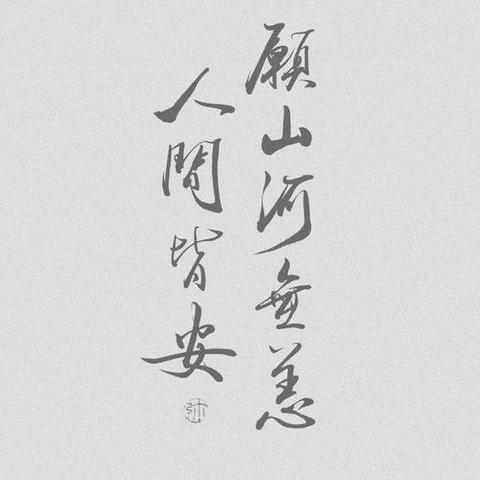 願山河無恙
人間皆安